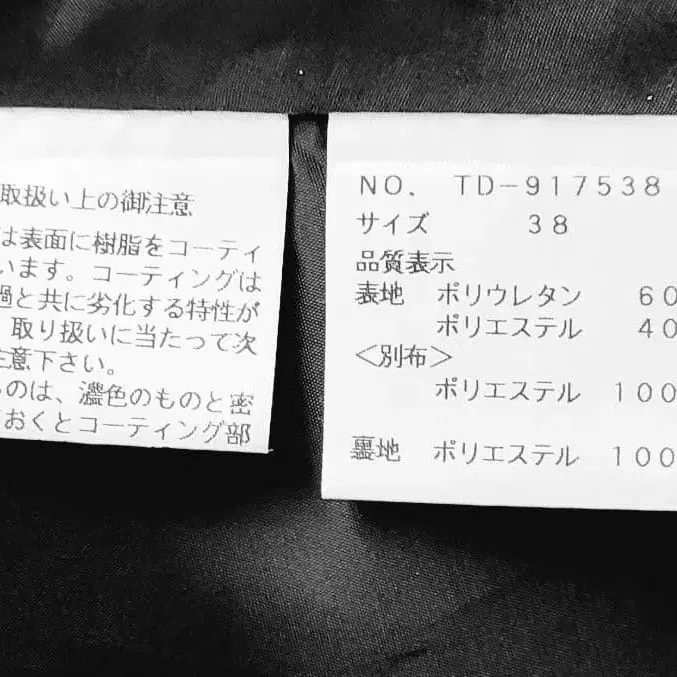 取扱い上の御注意
は表面に樹脂をコーティ
います。コーティングは
過と共に劣化する特性が
、取り扱いに当たって次
注意下さい。
ものは、濃色のものと密
おくとコーティング部
NO. TD-917538
サイズ 38
品質表示
表地 ポリウレタン 60
ポリエステル 40
<別布>
ポリエステル 100
裏地 ポリエステル 100